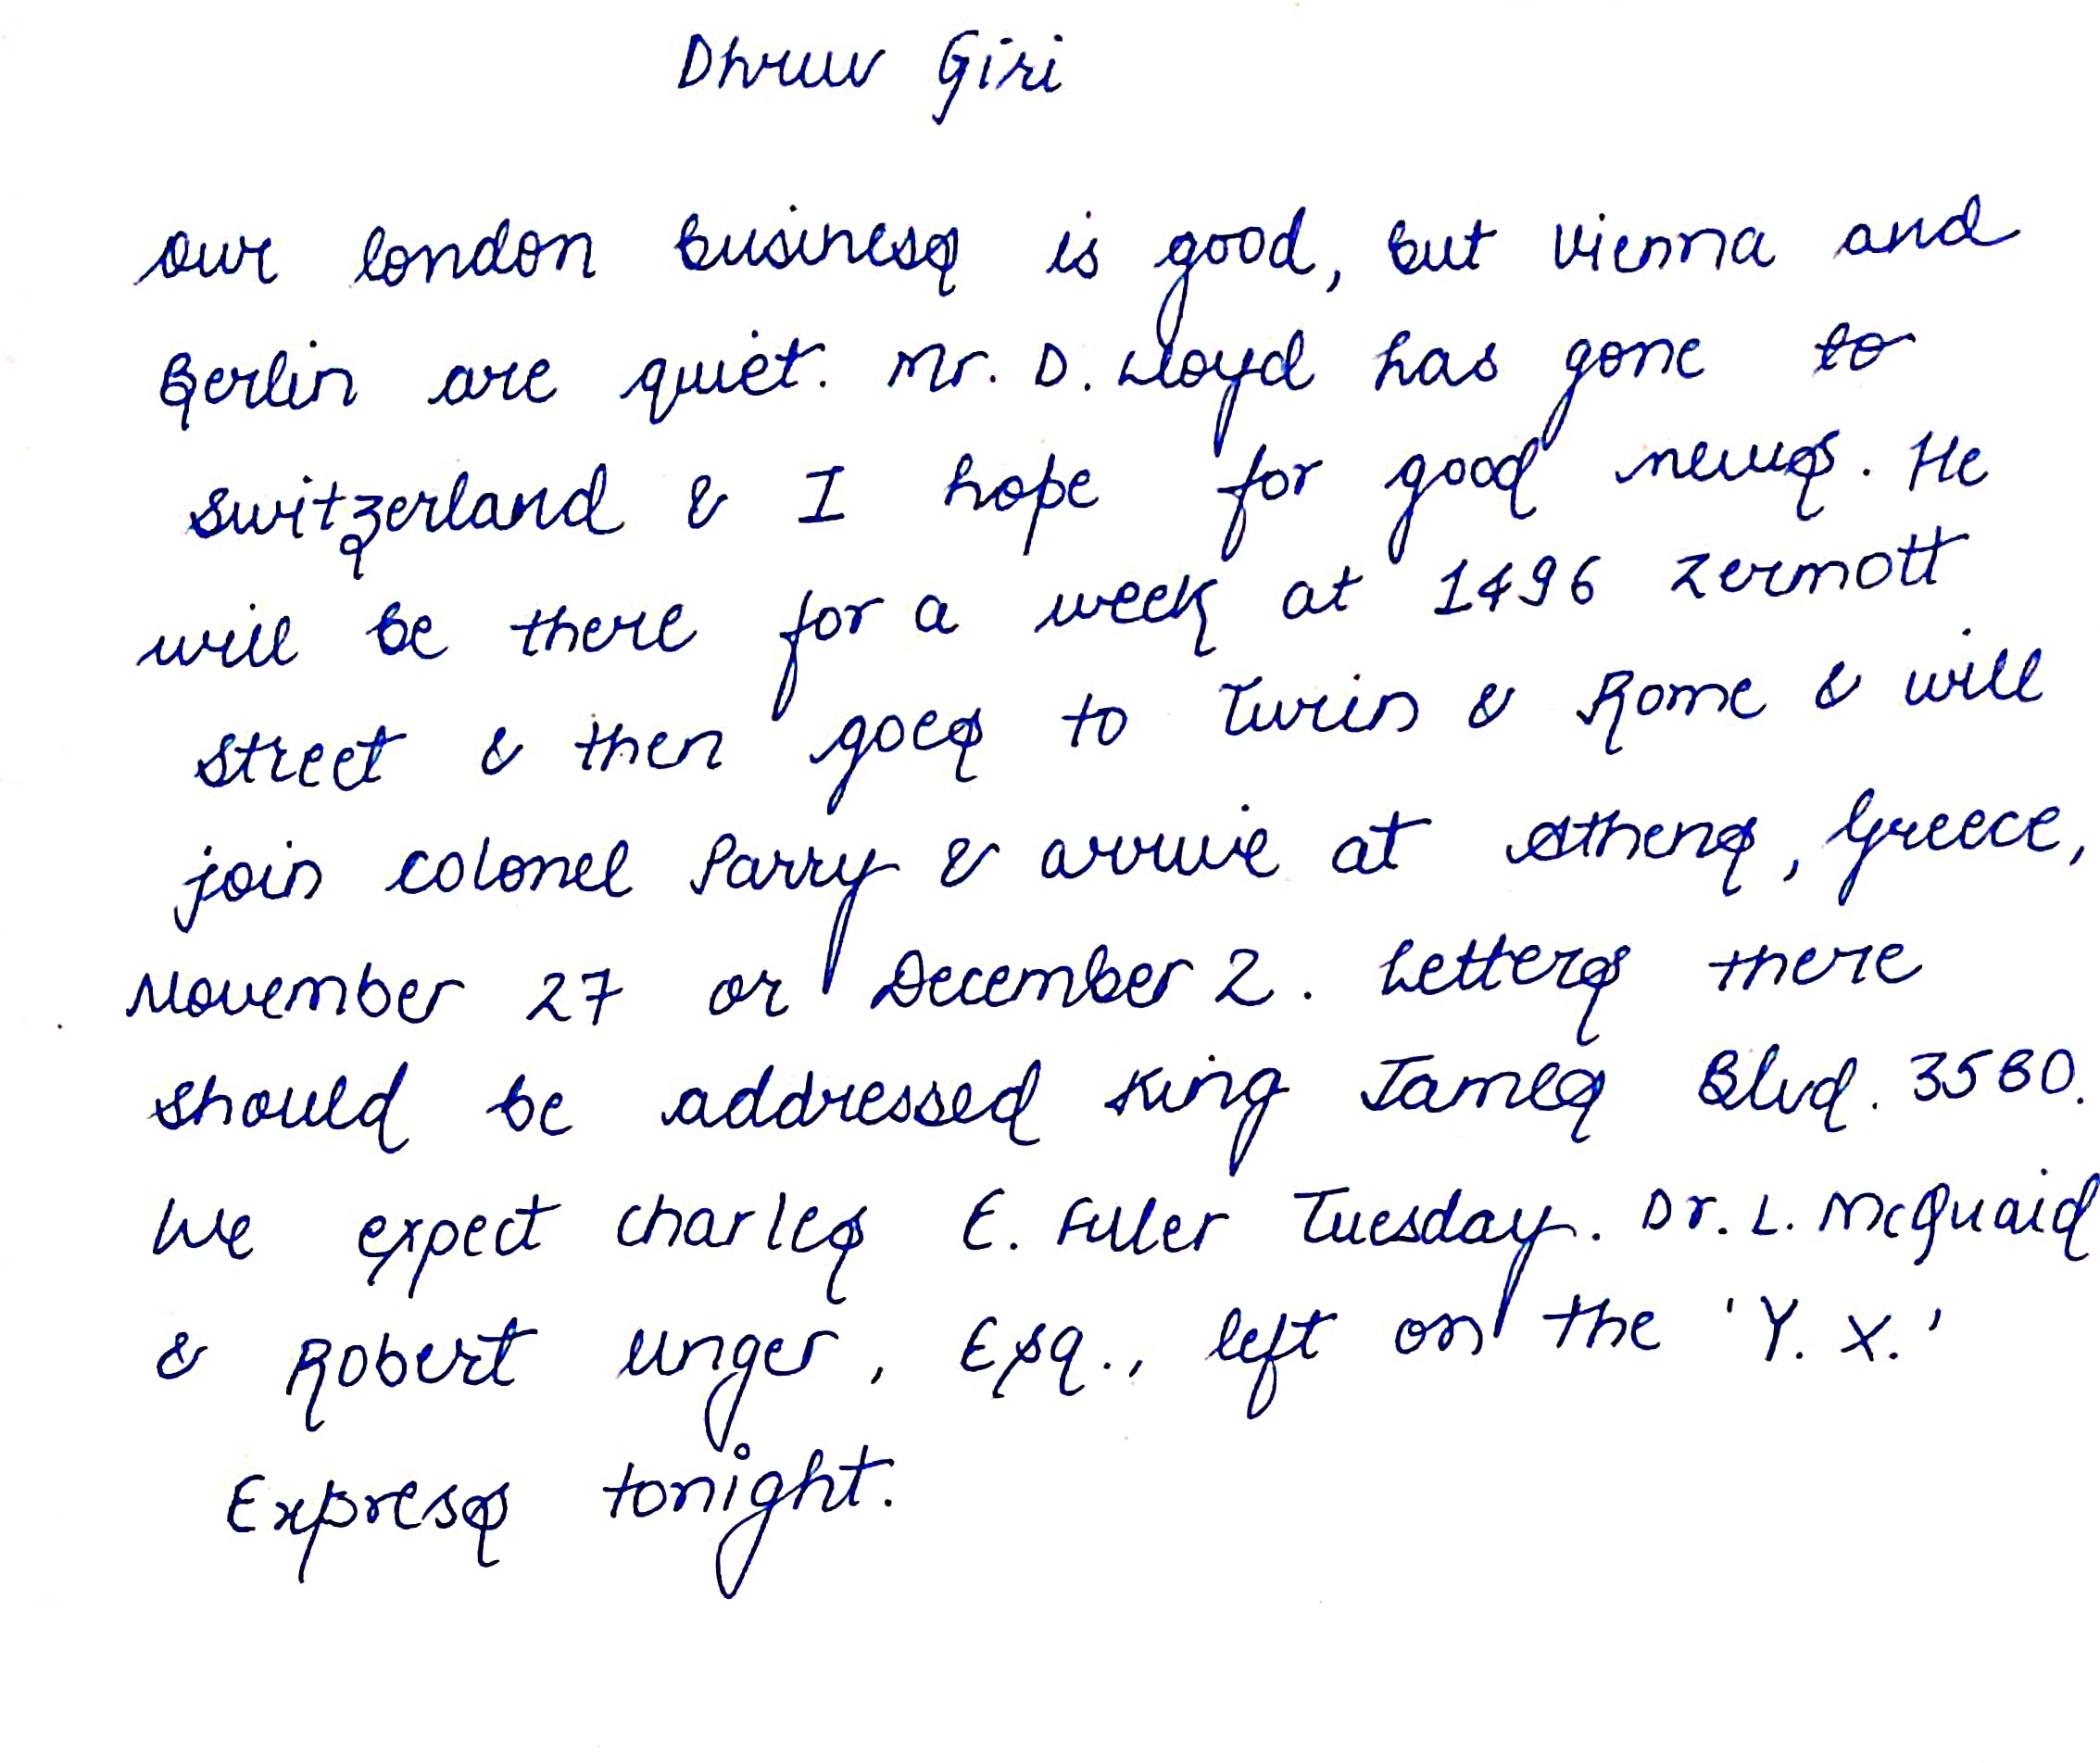 Dhruv Giri
our london business is good, but Vienna and
Berlin are quiet. Mr. D. Lloyd has gone to
switzerland & I hope for good news. He
will be there for a week at 1496 zermott
street & then goes to Turin & Rome & will
join colonel Parry & arrive at Athens, Greece,
November 27 or December 2. Letters there
should be addressed King James Blvd. 3580.
We expect charles E. Fuller Tuesday. Dr. L. McQuaid
& Robert Unger, Esq., left on the 'Y. X.'
Express tonight.